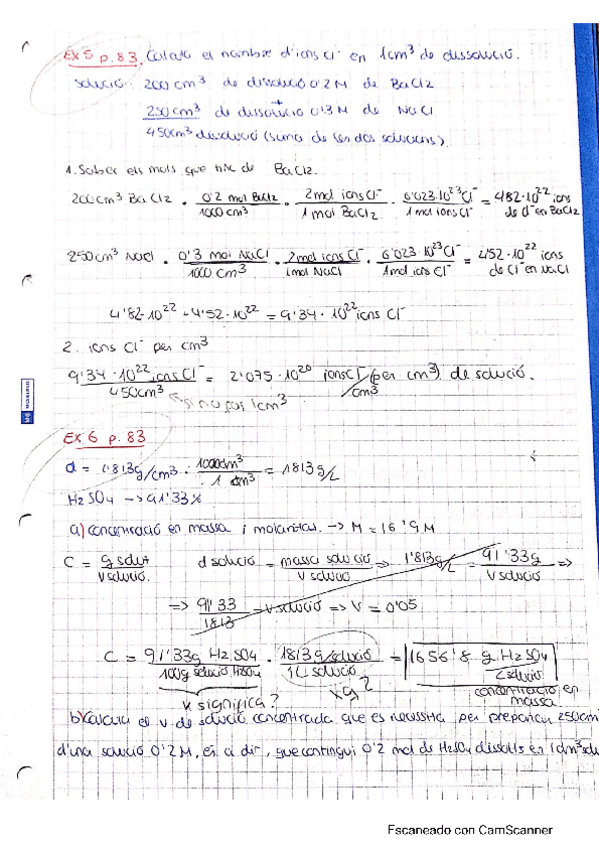 Ex 5 p.83. Calcula el nombre d'ions Cl⁻ en 1cm³ de dissolució.
solució: 200 cm³ de dissolució 0'2 M de BaCl2
+
250 cm³ de dissolució 0'3 M de NaCl
450cm³ dissolució (suma de les dos solucions).
1. Saber els mols que hi ha de BaCl2.
200cm³ BaCl2 · 0'2 mol BaCl2 / 1000 cm³ · 2mol ions Cl⁻ / 1 mol BaCl2 · 6'023·10²³ Cl⁻ / 1 mol ions Cl⁻ = 4'82·10²² ions de Cl⁻ en BaCl2
250cm³ NaCl · 0'3 mol NaCl / 1000 cm³ · 2mol ions Cl⁻ / 1mol NaCl · 6'023·10²³ Cl⁻ / 1mol ions Cl⁻ = 4'52·10²² ions de Cl⁻ en NaCl
4'82·10²² + 4'52·10²² = 9'34·10²² ions Cl⁻
2. ions Cl⁻ per cm³
9'34·10²² ions Cl⁻ / 450cm³ = 2'075·10²⁰ ions Cl⁻/cm³ (per cm³) de solució.
1cm³
Ex 6 p. 83
d = 1'813g/cm³ · 1000cm³ / 1 dm³ = 1813 g/L
H2SO4 -> 91'33%
a) concentració en massa i molaritat. -> M = 16'9 M
C = g solut / V solució. d solució = massa solució / V solució => 1'813g/L = 91'33g / V solució =>
=> 91'33 / 1813 = V solució => V = 0'05
C = 91'33g H2SO4 / 100g solució H2SO4 · 1813 g/solució / 1L solució = 1656'8 g H2SO4 / L solució
x g?
k significa?
concentració en massa
b) Calcula el V de solució concentrada que es necessita per preparar 250cm³
d'una solució 0'2 M, és a dir, que contingui 0'2 mol de H2SO4 dissolts en 1dm³ solu
MIQUELRIUS
Escaneado con CamScanner